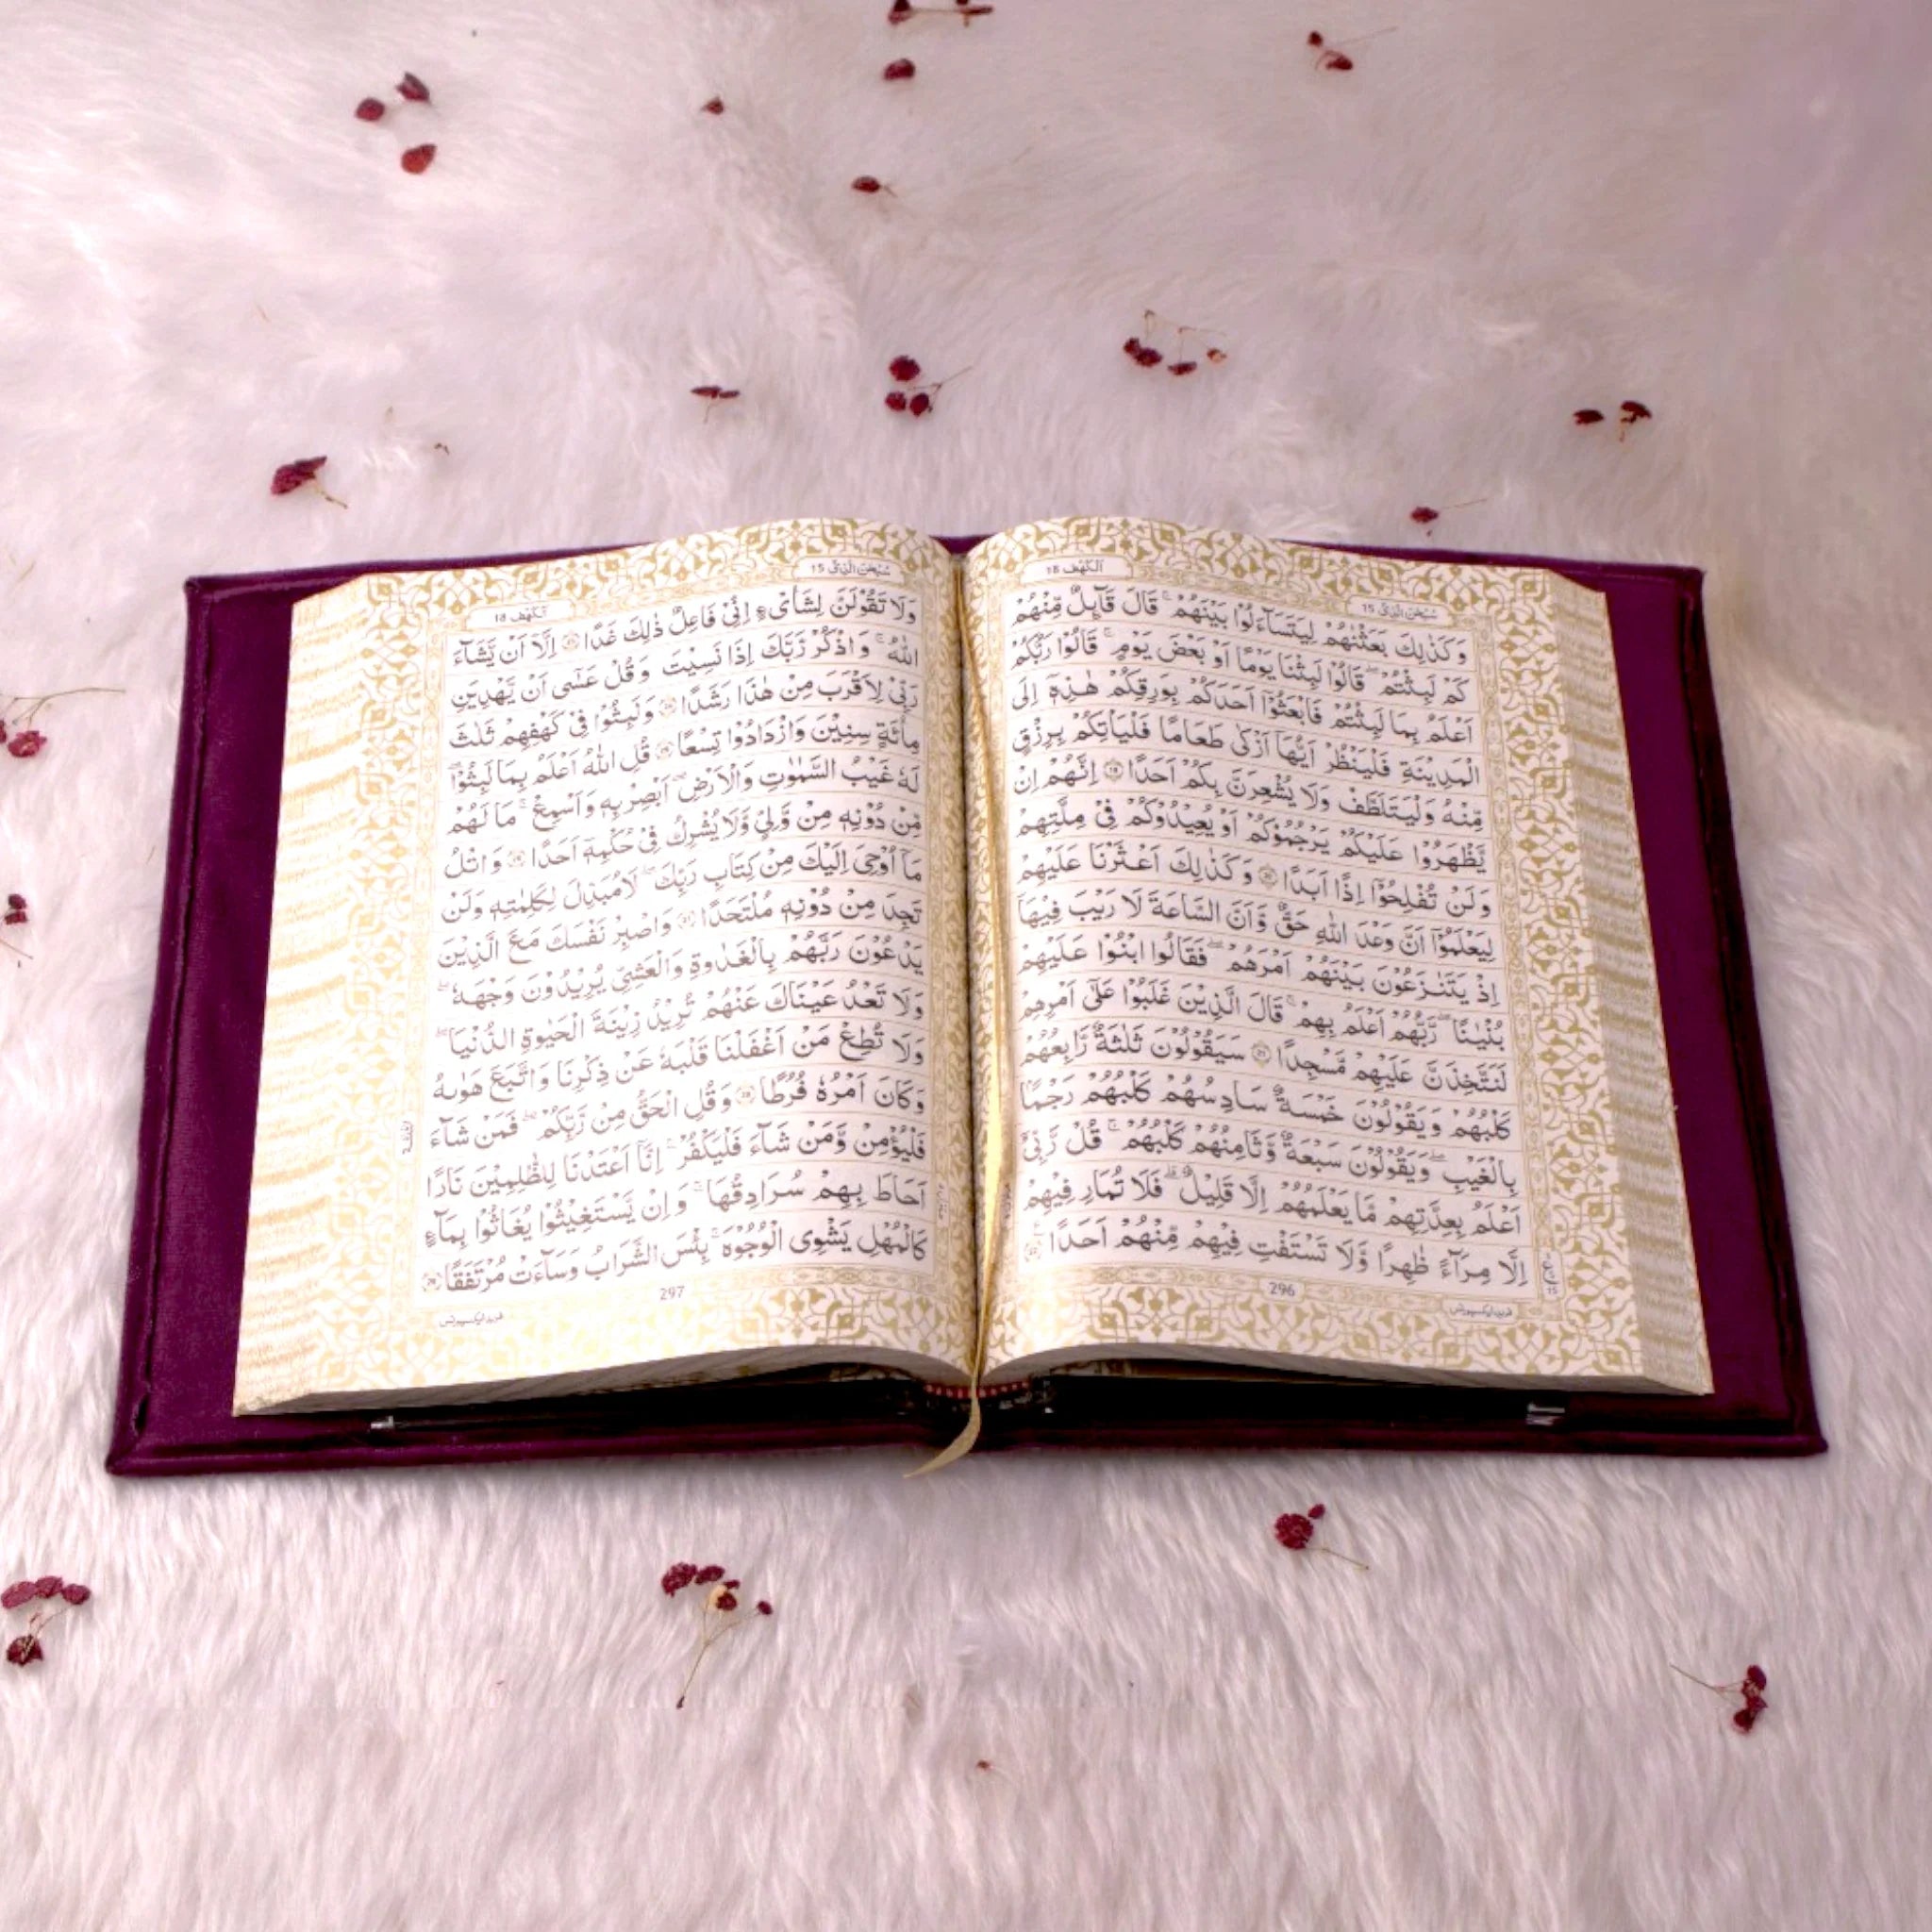 الكهف 18
سبحن الذى 15
وَكَذٰلِكَ بَعَثْنٰهُمْ لِيَتَسَآءَلُوْا بَيْنَهُمْ ؕ قَالَ قَآئِلٌ مِّنْهُمْ
كَمْ لَبِثْتُمْ ؕ قَالُوْا لَبِثْنَا يَوْمًا اَوْ بَعْضَ يَوْمٍ ؕ قَالُوْا رَبُّكُمْ
اَعْلَمُ بِمَا لَبِثْتُمْ فَابْعَثُوْٓا اَحَدَكُمْ بِوَرِقِكُمْ هٰذِهٖٓ اِلَى
الْمَدِيْنَةِ فَلْيَنْظُرْ اَيُّهَآ اَزْكٰى طَعَامًا فَلْيَاْتِكُمْ بِرِزْقٍ
مِّنْهُ وَلْيَتَلَطَّفْ وَلَا يُشْعِرَنَّ بِكُمْ اَحَدًا ۱۹ اِنَّهُمْ اِنْ
يَّظْهَرُوْا عَلَيْكُمْ يَرْجُمُوْكُمْ اَوْ يُعِيْدُوْكُمْ فِيْ مِلَّتِهِمْ
وَلَنْ تُفْلِحُوْٓا اِذًا اَبَدًا ۲۰ وَكَذٰلِكَ اَعْثَرْنَا عَلَيْهِمْ
لِيَعْلَمُوْٓا اَنَّ وَعْدَ اللّٰهِ حَقٌّ وَّاَنَّ السَّاعَةَ لَا رَيْبَ فِيْهَا
اِذْ يَتَنَازَعُوْنَ بَيْنَهُمْ اَمْرَهُمْ فَقَالُوا ابْنُوْا عَلَيْهِمْ
بُنْيَانًا ؕ رَبُّهُمْ اَعْلَمُ بِهِمْ ؕ قَالَ الَّذِيْنَ غَلَبُوْا عَلٰٓى اَمْرِهِمْ
لَنَتَّخِذَنَّ عَلَيْهِمْ مَّسْجِدًا ۲۱ سَيَقُوْلُوْنَ ثَلٰثَةٌ رَّابِعُهُمْ
كَلْبُهُمْ وَيَقُوْلُوْنَ خَمْسَةٌ سَادِسُهُمْ كَلْبُهُمْ رَجْمًۢا
بِالْغَيْبِ ۚ وَيَقُوْلُوْنَ سَبْعَةٌ وَّثَامِنُهُمْ كَلْبُهُمْ ؕ قُلْ رَّبِّيْٓ
اَعْلَمُ بِعِدَّتِهِمْ مَّا يَعْلَمُهُمْ اِلَّا قَلِيْلٌ ۫ فَلَا تُمَارِ فِيْهِمْ
اِلَّا مِرَآءً ظَاهِرًا وَّلَا تَسْتَفْتِ فِيْهِمْ مِّنْهُمْ اَحَدًا ۲۲
296
سبحن الذى 15
الكهف 18
وَلَا تَقُوْلَنَّ لِشَايْءٍ اِنِّيْ فَاعِلٌ ذٰلِكَ غَدًا ۲۳ اِلَّآ اَنْ يَّشَآءَ
اللّٰهُ ؗ وَاذْكُرْ رَّبَّكَ اِذَا نَسِيْتَ وَقُلْ عَسٰٓى اَنْ يَّهْدِيَنِ
رَبِّيْ لِاَقْرَبَ مِنْ هٰذَا رَشَدًا ۲۴ وَلَبِثُوْا فِيْ كَهْفِهِمْ ثَلٰثَ
مِائَةٍ سِنِيْنَ وَازْدَادُوْا تِسْعًا ۲۵ قُلِ اللّٰهُ اَعْلَمُ بِمَا لَبِثُوْا ۚ
لَهٗ غَيْبُ السَّمٰوٰتِ وَالْاَرْضِ ؕ اَبْصِرْ بِهٖ وَاَسْمِعْ ؕ مَا لَهُمْ
مِّنْ دُوْنِهٖ مِنْ وَّلِيٍّ وَّلَا يُشْرِكُ فِيْ حُكْمِهٖٓ اَحَدًا ۲۶ وَاتْلُ
مَآ اُوْحِيَ اِلَيْكَ مِنْ كِتَابِ رَبِّكَ ؕ لَا مُبَدِّلَ لِكَلِمٰتِهٖ وَلَنْ
تَجِدَ مِنْ دُوْنِهٖ مُلْتَحَدًا ۲۷ وَاصْبِرْ نَفْسَكَ مَعَ الَّذِيْنَ
يَدْعُوْنَ رَبَّهُمْ بِالْغَدٰوةِ وَالْعَشِيِّ يُرِيْدُوْنَ وَجْهَهٗ
وَلَا تَعْدُ عَيْنٰكَ عَنْهُمْ تُرِيْدُ زِيْنَةَ الْحَيٰوةِ الدُّنْيَا ۚ
وَلَا تُطِعْ مَنْ اَغْفَلْنَا قَلْبَهٗ عَنْ ذِكْرِنَا وَاتَّبَعَ هَوٰىهُ
وَكَانَ اَمْرُهٗ فُرُطًا ۲۸ وَقُلِ الْحَقُّ مِنْ رَّبِّكُمْ ۫ فَمَنْ شَآءَ
فَلْيُؤْمِنْ وَّمَنْ شَآءَ فَلْيَكْفُرْ ۙ اِنَّآ اَعْتَدْنَا لِلظّٰلِمِيْنَ نَارًا
اَحَاطَ بِهِمْ سُرَادِقُهَا ؕ وَاِنْ يَّسْتَغِيْثُوْا يُغَاثُوْا بِمَآءٍ
كَالْمُهْلِ يَشْوِى الْوُجُوْهَ ؕ بِئْسَ الشَّرَابُ وَسَآءَتْ مُرْتَفَقًا ۲۹
297